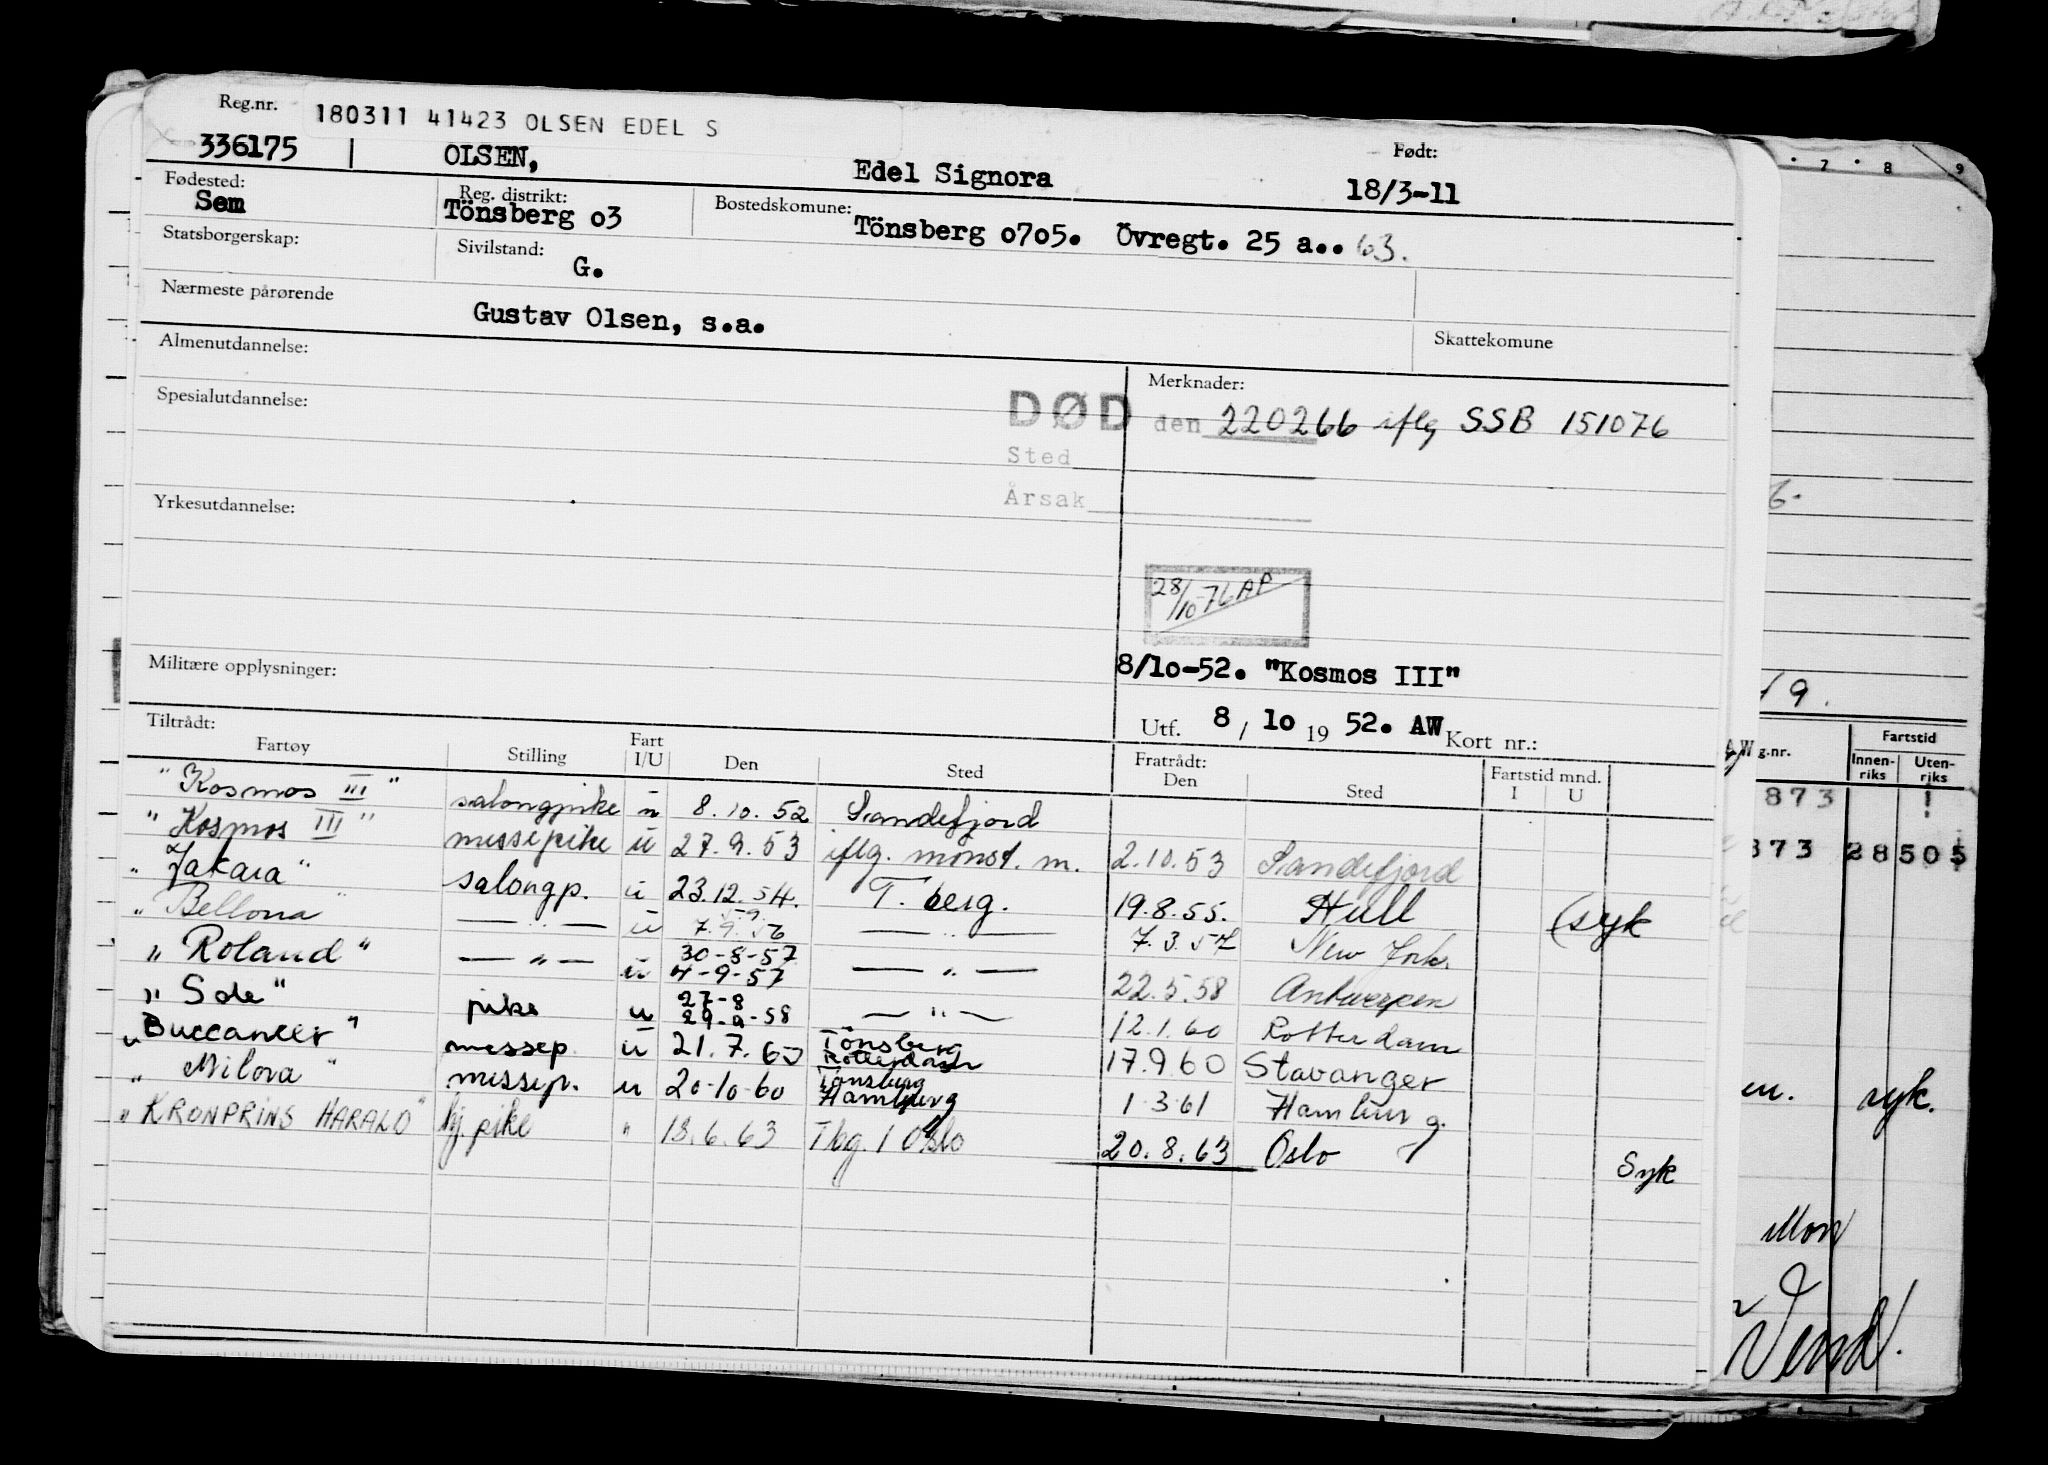 Reg.nr. 180311 41423 OLSEN EDEL S
336175 OLSEN, Edel Signora Født: 18/3-11
Fødested: Sem Reg. distrikt: Tönsberg o3 Bostedskomune: Tönsberg o7o5. Övregt. 25 a.. 63.
Statsborgerskap: Sivilstand: G.
Nærmeste pårørende Gustav Olsen, s.a.
Skattekomune
Almenutdannelse: Merknader:
Spesialutdannelse: DØD den 220266 iflg SSB 151076
Sted
Årsak
Yrkesutdannelse:
28/10-76 AP
Militære opplysninger: 8/lo-52. "Kosmos III"
Tiltrådt: Utf. 8 / lo 19 52. AW Kort nr.:
Fartøy Stilling Fart I/U Den Sted Fratrådt: Den Sted Fartstid mnd. I U
"Kosmos III" salongpike u 8.10.52 Sandefjord
"Kosmos III" messepike u 27.9.53 iflg. mønst. m. 2.10.53 Sandefjord
"Jakara" salongp. u 23.12.54. T.berg. 19.8.55. Hull (syk
"Bellona" — " — u 7.9.56 — " — 7.3.57 New York.
"Roland" — " — u 30-8-57 4-9-57 — " — 22.5.58 Antwerpen
"Sole" pike u 27-8 29-9-58 — " — 12.1.60 Rotterdam
"Buccaneer" messep. u 21.7.60 Tönsberg Rotterdam 17.9.60 Stavanger
"Milora" messep. u 20-10-60 Tönsberg Hamburg 1.3.61 Hamburg.
"KRONPRINS HARALD" hj.pike " 18.6.63 Tbg. / Oslo 20.8.63 Oslo Syk
7 8 9
6-
9.
AW g.nr. Fartstid
Innenriks Utenriks
873
873 28 505
en. syk.
Mon
Vend!